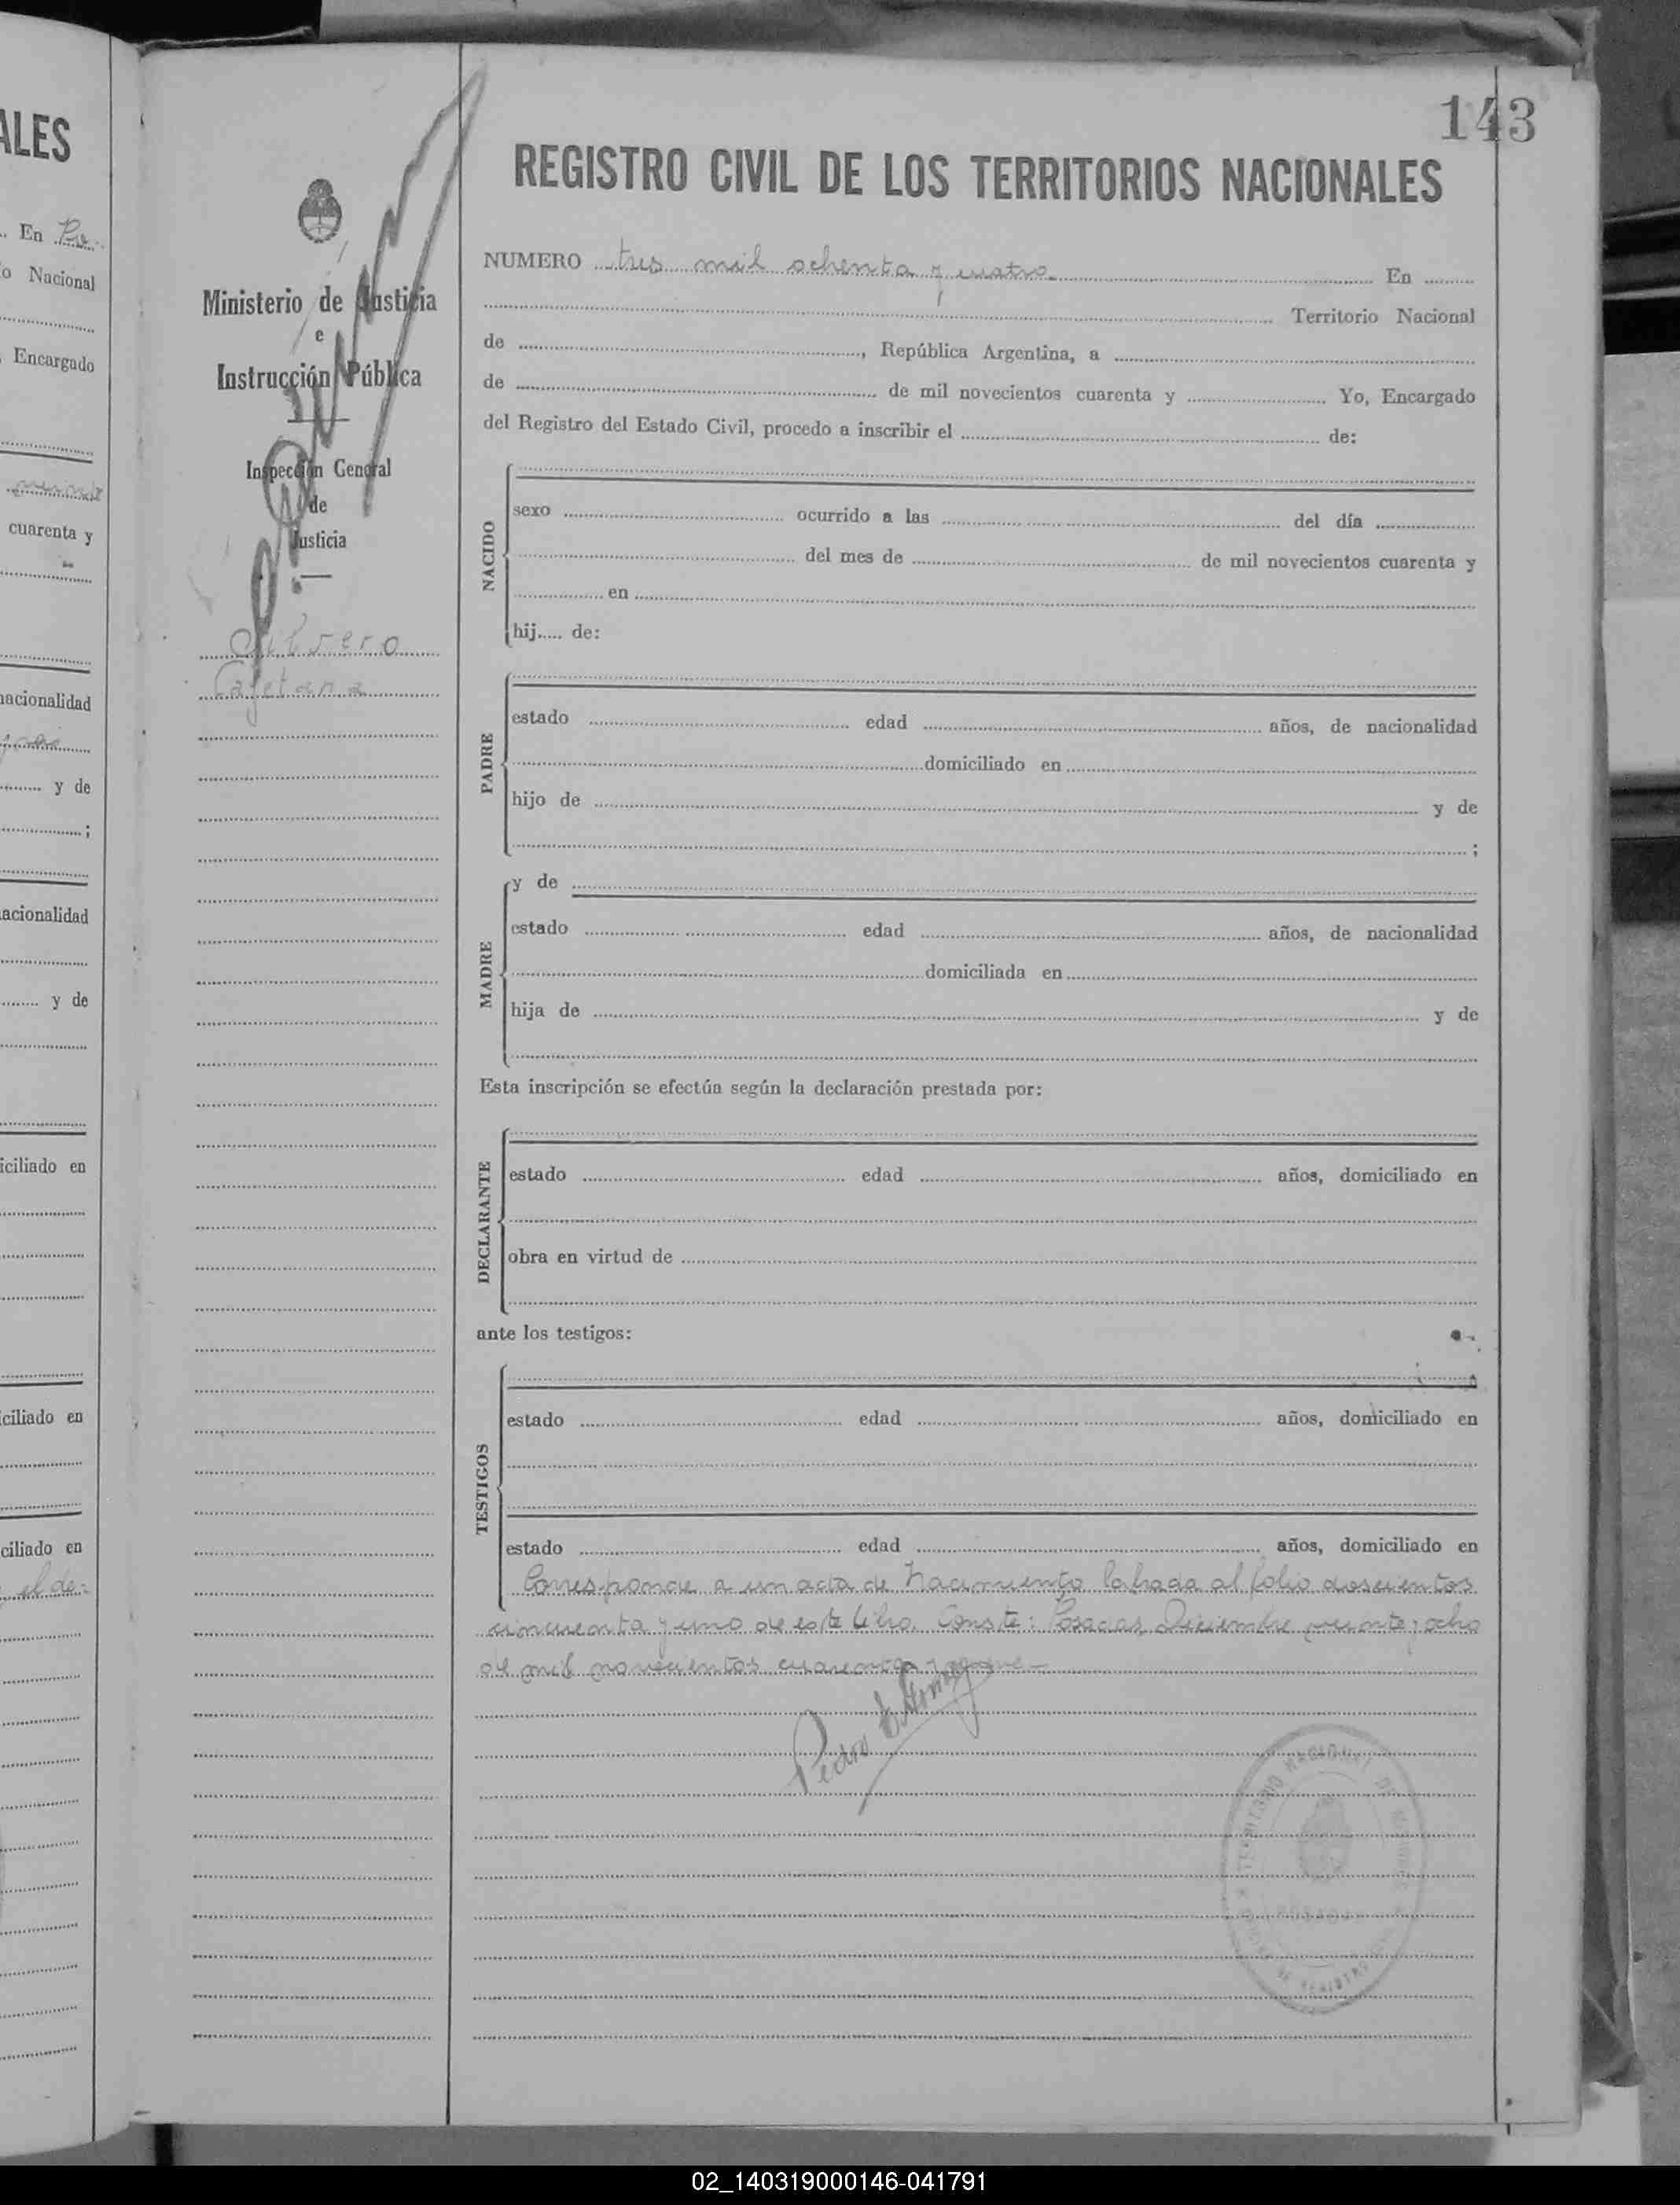 143
REGISTRO CIVIL DE LOS TERRITORIOS NACIONALES
Ministerio de Justicia
e
Instrucción Pública
Inspección General
de
Justicia
Cayetana
NUMERO tres mil ochenta y cuatro En
Territorio Nacional
de , República Argentina, a
de de mil novecientos cuarenta y Yo, Encargado
del Registro del Estado Civil, procedo a inscribir el de:
NACIDO
sexo ocurrido a las del día
del mes de de mil novecientos cuarenta y
en
hij..... de:
PADRE
estado edad años, de nacionalidad
domiciliado en
hijo de y de
;
MADRE
y de
estado edad años, de nacionalidad
domiciliada en
hija de y de
Esta inscripción se efectúa según la declaración prestada por:
DECLARANTE
estado edad años, domiciliado en
obra en virtud de
ante los testigos:
TESTIGOS
estado edad años, domiciliado en
estado edad años, domiciliado en
Corresponde a un acta de Nacimiento labrada al folio doscientos
cincuenta y uno de este libro. Conste: Posadas, Diciembre veinte y ocho
de mil novecientos cuarenta y
Pedro E.
ALES
En
o Nacional
Encargado
cuarenta y
nacionalidad
y de
;
acionalidad
y de
iciliado en
ciliado en
ciliado en
el de-
02_140319000146-041791